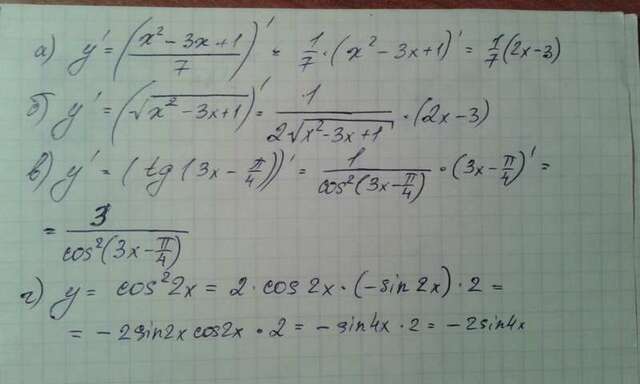 а) y' = ((x² - 3x + 1)/7)' = 1/7 · (x² - 3x + 1)' = 1/7 (2x - 3)
б) y' = (√(x² - 3x + 1))' = 1/(2√(x² - 3x + 1)) · (2x - 3)
в) y' = (tg(3x - π/4))' = 1/(cos²(3x - π/4)) · (3x - π/4)' =
= 3/(cos²(3x - π/4))
г) y = cos²2x = 2 · cos2x · (-sin2x) · 2 =
= -2sin2x cos2x · 2 = -sin4x · 2 = -2sin4x